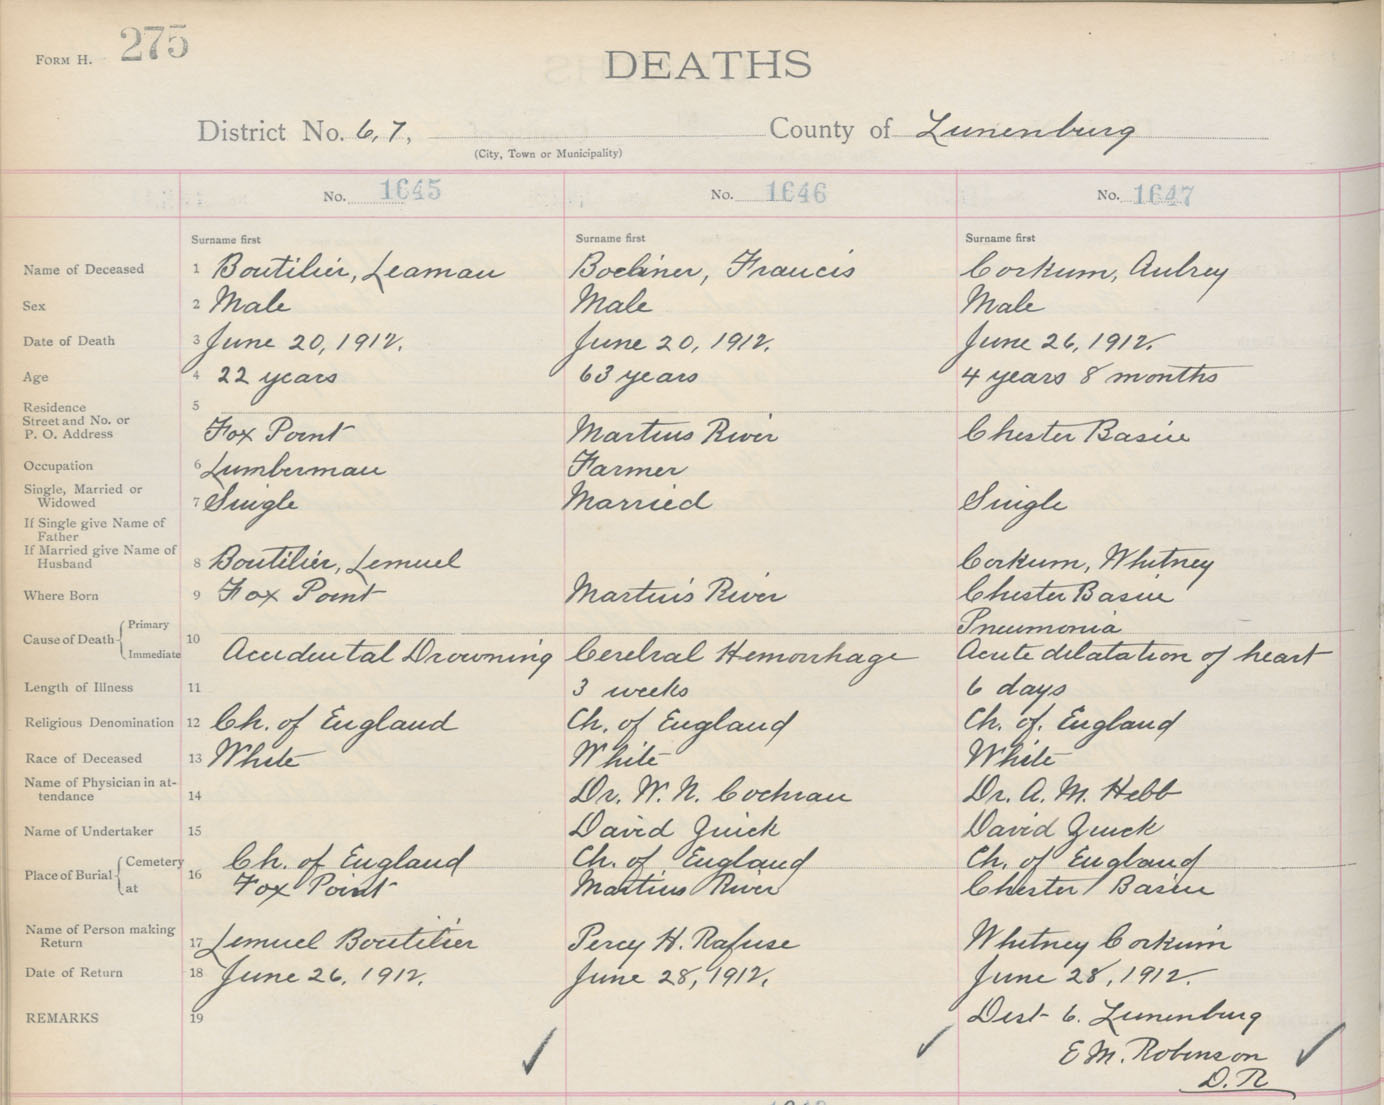 FORM H. 275
DEATHS
District No. 6, 7, County of Lunenburg
(City, Town or Municipality)
No. 1645 No. 1646 No. 1647
Surname first Surname first Surname first
Name of Deceased 1 Boutilier, Leaman Boehner, Francis Corkum, Aubrey
Sex 2 Male Male Male
Date of Death 3 June 20, 1912. June 20, 1912. June 26, 1912.
Age 4 22 years 63 years 4 years 8 months
Residence 5
Street and No. or
P. O. Address Fox Point Martins River Chester Basin
Occupation 6 Lumberman Farmer
Single, Married or
Widowed 7 Single Married Single
If Single give Name of
Father
If Married give Name of
Husband 8 Boutilier, Lemuel Corkum, Whitney
Where Born 9 Fox Point Martin's River Chester Basin
Cause of Death Primary 10 Pneumonia
Immediate Accidental Drowning Cerebral Hemorrhage Acute dilatation of heart
Length of Illness 11 3 weeks 6 days
Religious Denomination 12 Ch. of England Ch. of England Ch. of. England
Race of Deceased 13 White White White
Name of Physician in at-
tendance 14 Dr. W. N. Cochran Dr. A. M. Hebb
Name of Undertaker 15 David Zwick David Zwick
Place of Burial Cemetery 16 Ch. of England Ch. of England Ch. of England
at Fox Point Martins River Chester Basin
Name of Person making
Return 17 Lemuel Boutilier Percy H. Rafuse Whitney Corkum
Date of Return 18 June 26, 1912. June 28, 1912. June 28, 1912.
REMARKS 19 Dist 6. Lunenburg
E M. Robinson
D. R